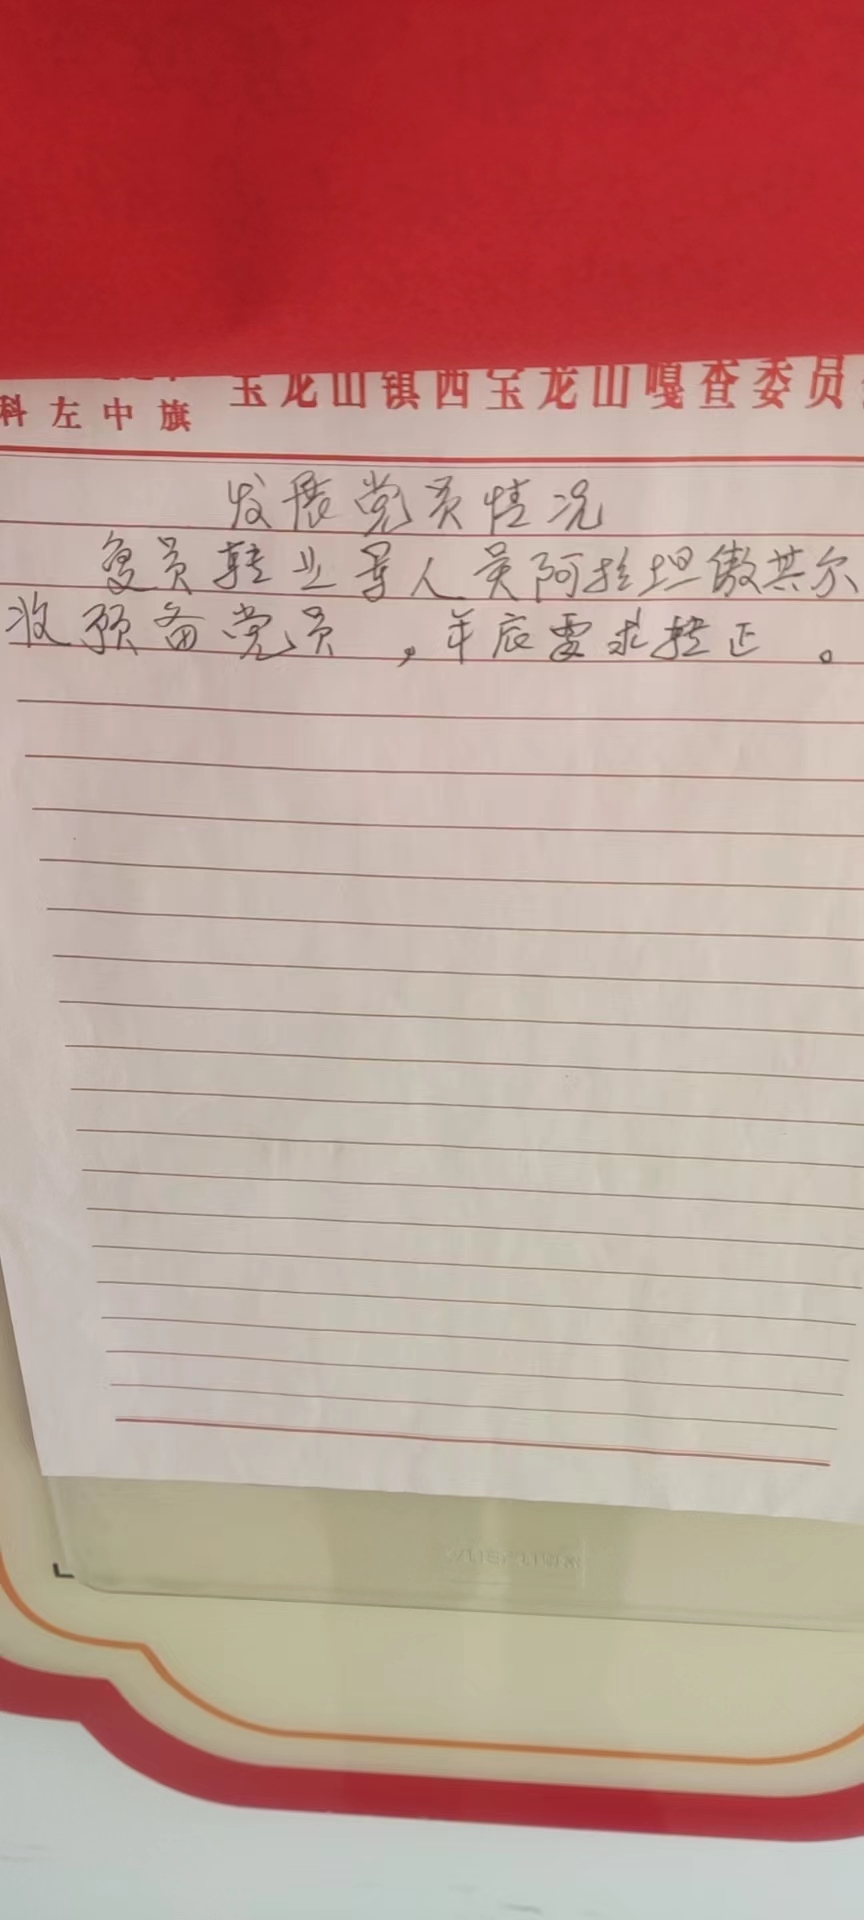 科左中旗 宝龙山镇西宝龙山嘎查委员
发展党员情况
复员转业军人吴阿拉坦傲其尔
收预备党员，年底要求转正。